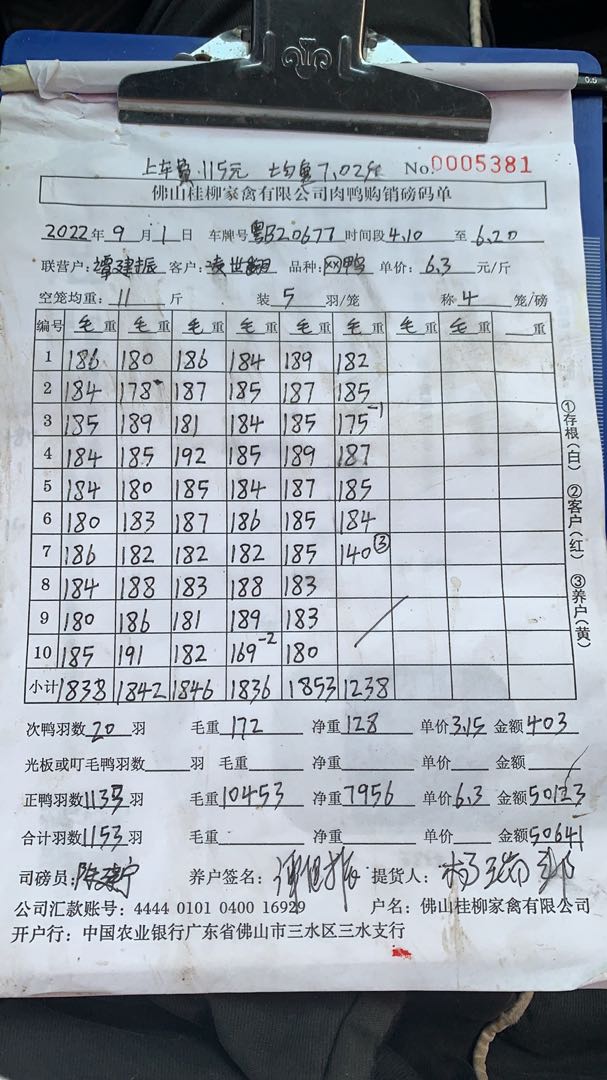 上车费.115元 均重7.02斤 No.0005381
佛山桂柳家禽有限公司肉鸭购销磅码单
2022年9月1日 车牌号粤B20677时间段4.10至6.20
联营户:谭建振 客户:凌世翻 品种:网鸭 单价:6.3元/斤
空笼均重:11斤 装5羽/笼 称4笼/磅
编号 毛重 毛重 毛重 毛重 毛重 毛重 毛重 毛重 重
1 186 180 186 184 189 182
2 184 178 187 185 187 185
3 185 189 181 184 185 175-1
4 184 185 192 185 189 187
5 184 180 185 184 187 185
6 180 183 187 186 185 184
7 186 182 182 182 185 140③
8 184 188 183 188 183
9 180 186 181 189 183
10 185 191 182 169-2 180
小计 1838 1842 1846 1836 1853 1238
次鸭羽数20羽 毛重172 净重128 单价3.15 金额403
光板或叮毛鸭羽数 羽 毛重 净重 单价 金额
正鸭羽数1133羽 毛重10453 净重7956 单价6.3 金额50123
合计羽数1153羽 毛重 净重 单价 金额50641
司磅员: 养户签名: 提货人:
公司汇款账号:4444 0101 0400 16929 户名:佛山桂柳家禽有限公司
开户行:中国农业银行广东省佛山市三水区三水支行
①存根(白) ②客户(红) ③养户(黄)
0.5